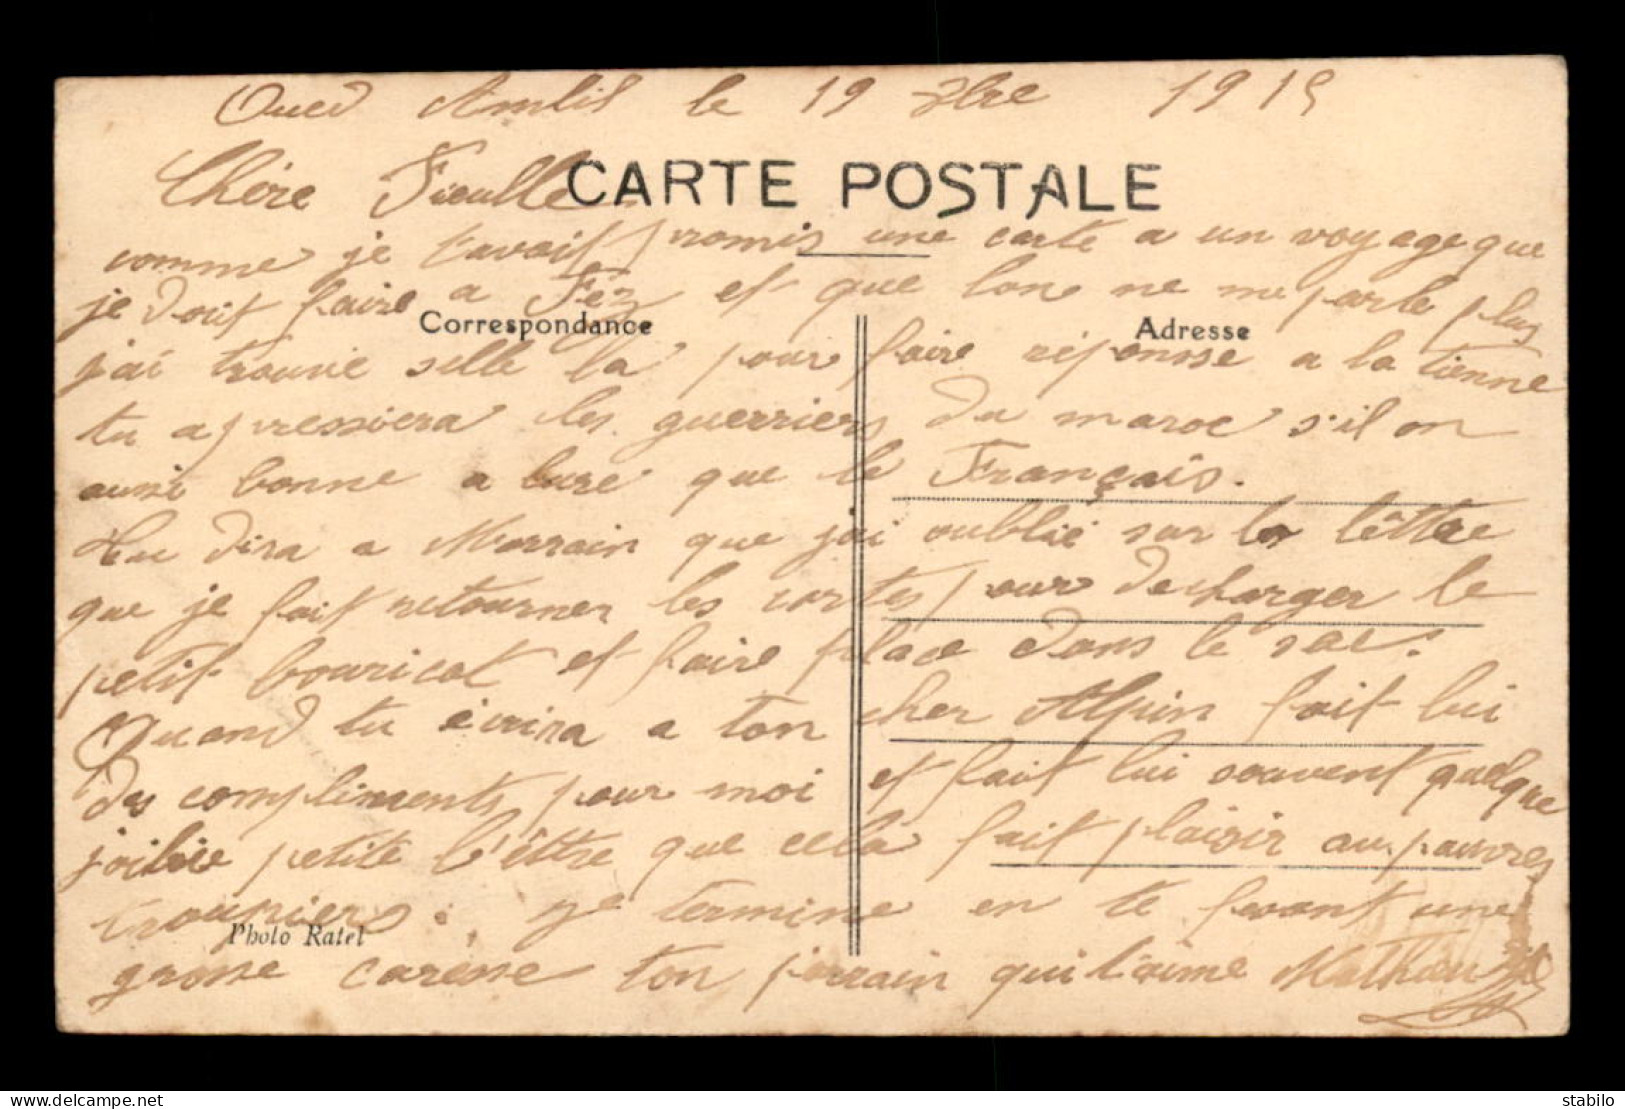 Oued Amlil le 19 Xbre 1915
CARTE POSTALE
Chère Fieulle
comme je t'avait promis une carte a un voyage que
je doit faire a Fez et que lon ne me parle plus
Correspondance
Adresse
j'ai trouvé selle la pour faire réponsse a la tienne
tu apressiera les guerriers du maroc s'il on
aussi bonne a lure que le Français.
tu dira a Marrain que j'ai oublié sur la lêttre
que je fait retourner les cartes pour decharger le
petit bouricot et faire place dans le sac.
Quand tu écrira a ton cher Alpin fait lui
des compliments pour moi et fait lui souvent quelque
jolie petite l'êttre que cela fait plaisir au pauvres
troupiers. je termine en te fesant une
Photo Ratel
grosse caresse ton parrain qui t'aime